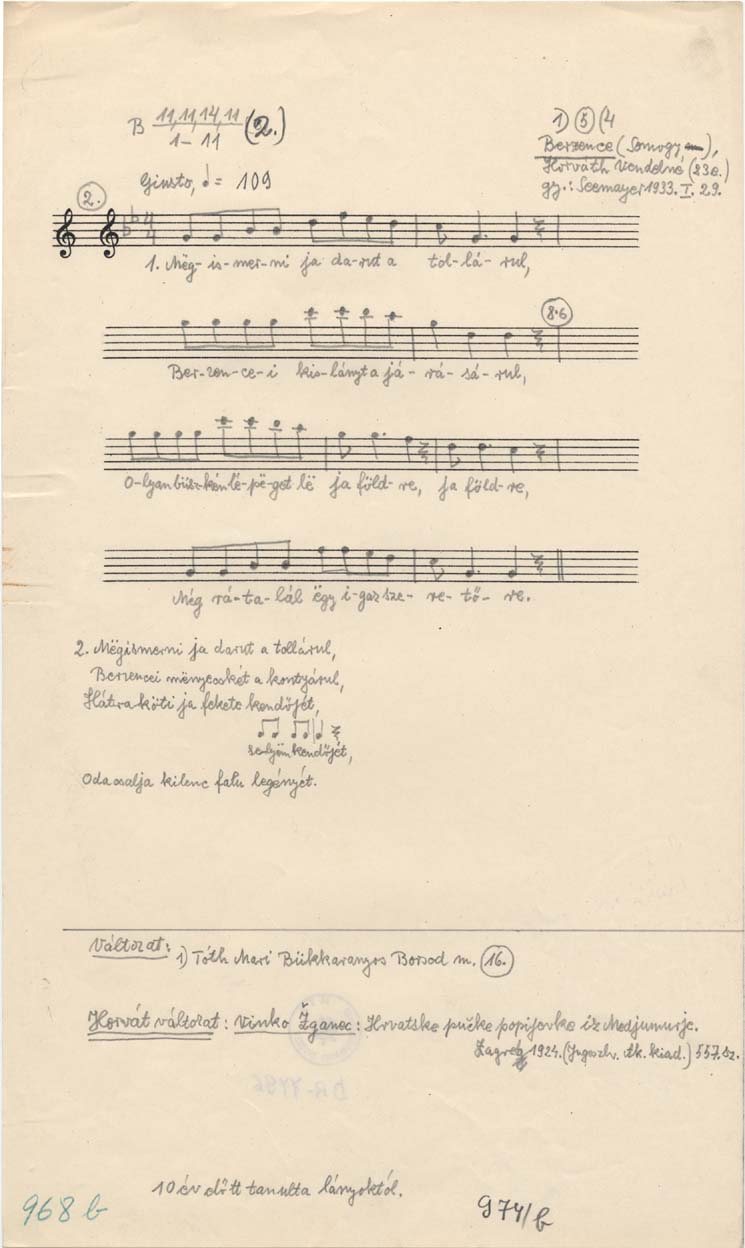 B 11,11,14,11 (2.)
1 – 11
1) ⑤ (4
Berzence (Somogy),
Horváth Vendelné (23 é.)
gy.: Seemayer 1933. I. 29.
Giusto, ♩ = 109
2.
4
4
1. Mëg-is-mer-ni ja da-rut a tol-lá-rul,
8·6
Ber-zen-ce-i kis-lányt a já-rá-sá-rul,
O-lyan büsz-kén lé-pë-get lë ja föld-re, ja föld-re,
Még rá-ta-lál ëgy i-gaz sze-re-tő-re.
2. Mëgismerni ja darut a tollárul,
Berzencei mënyecskét a kontyárul,
Hátra köti ja fekete kendőjét,
selyöm kendőjét,
Oda csalja kilenc falu legényét.
Változat: 1) Tóth Mari Bükkaranyos Borsod m. 16.
Horvát változat: Vinko Žganec: Hrvatske pučke popijevke iz Medjumurje.
Zagreb 1924. (Jugoszlv. Ak. kiad.) 557. sz.
DR-7796
10 év előtt tanulta lányoktól.
968 b
974/b